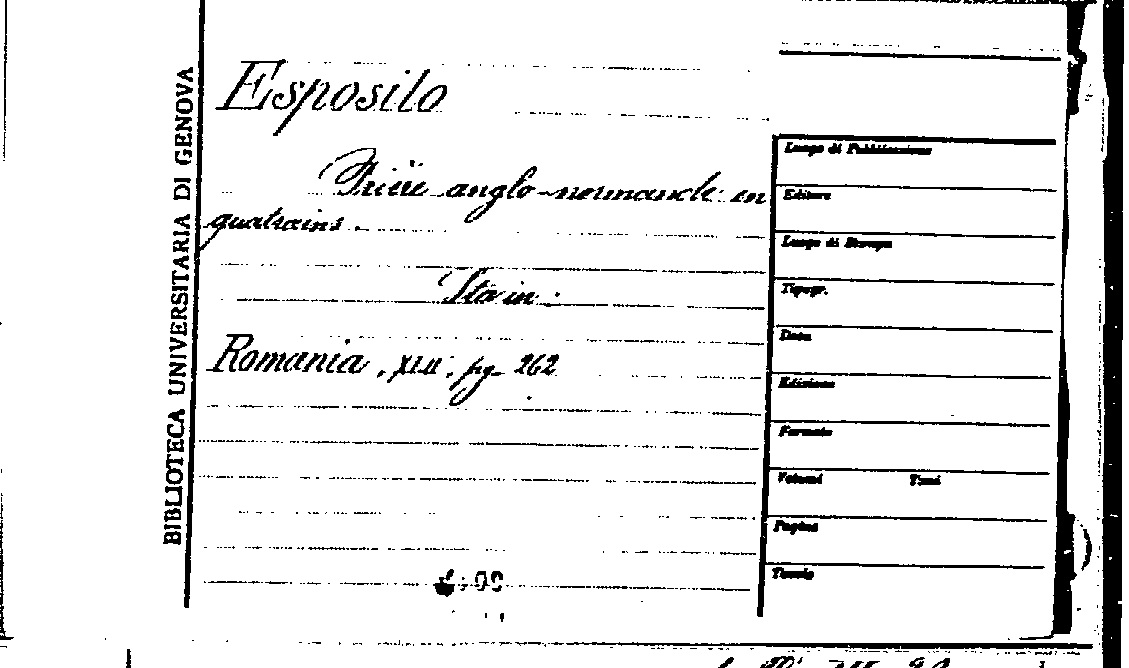 BIBLIOTECA UNIVERSITARIA DI GENOVA
Esposito
Prière anglo-normande en
quatrains.
Sta in:
Romania, XLII, pg. 262
Luogo di Pubblicazione
Editore
Luogo di Stampa
Tipogr.
Data
Edizione
Formato
Volumi Tomi
Pagine
Tavole